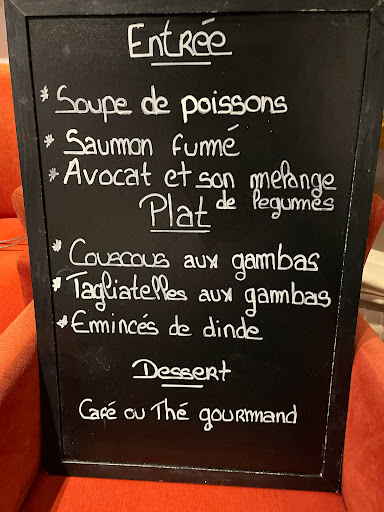 Entrée
* Soupe de poissons
* Saumon fumé
* Avocat et son melange
de legumes
Plat
* Couscous aux gambas
* Tagliatelles aux gambas
* Emincés de dinde
Dessert
Café ou Thé gourmand